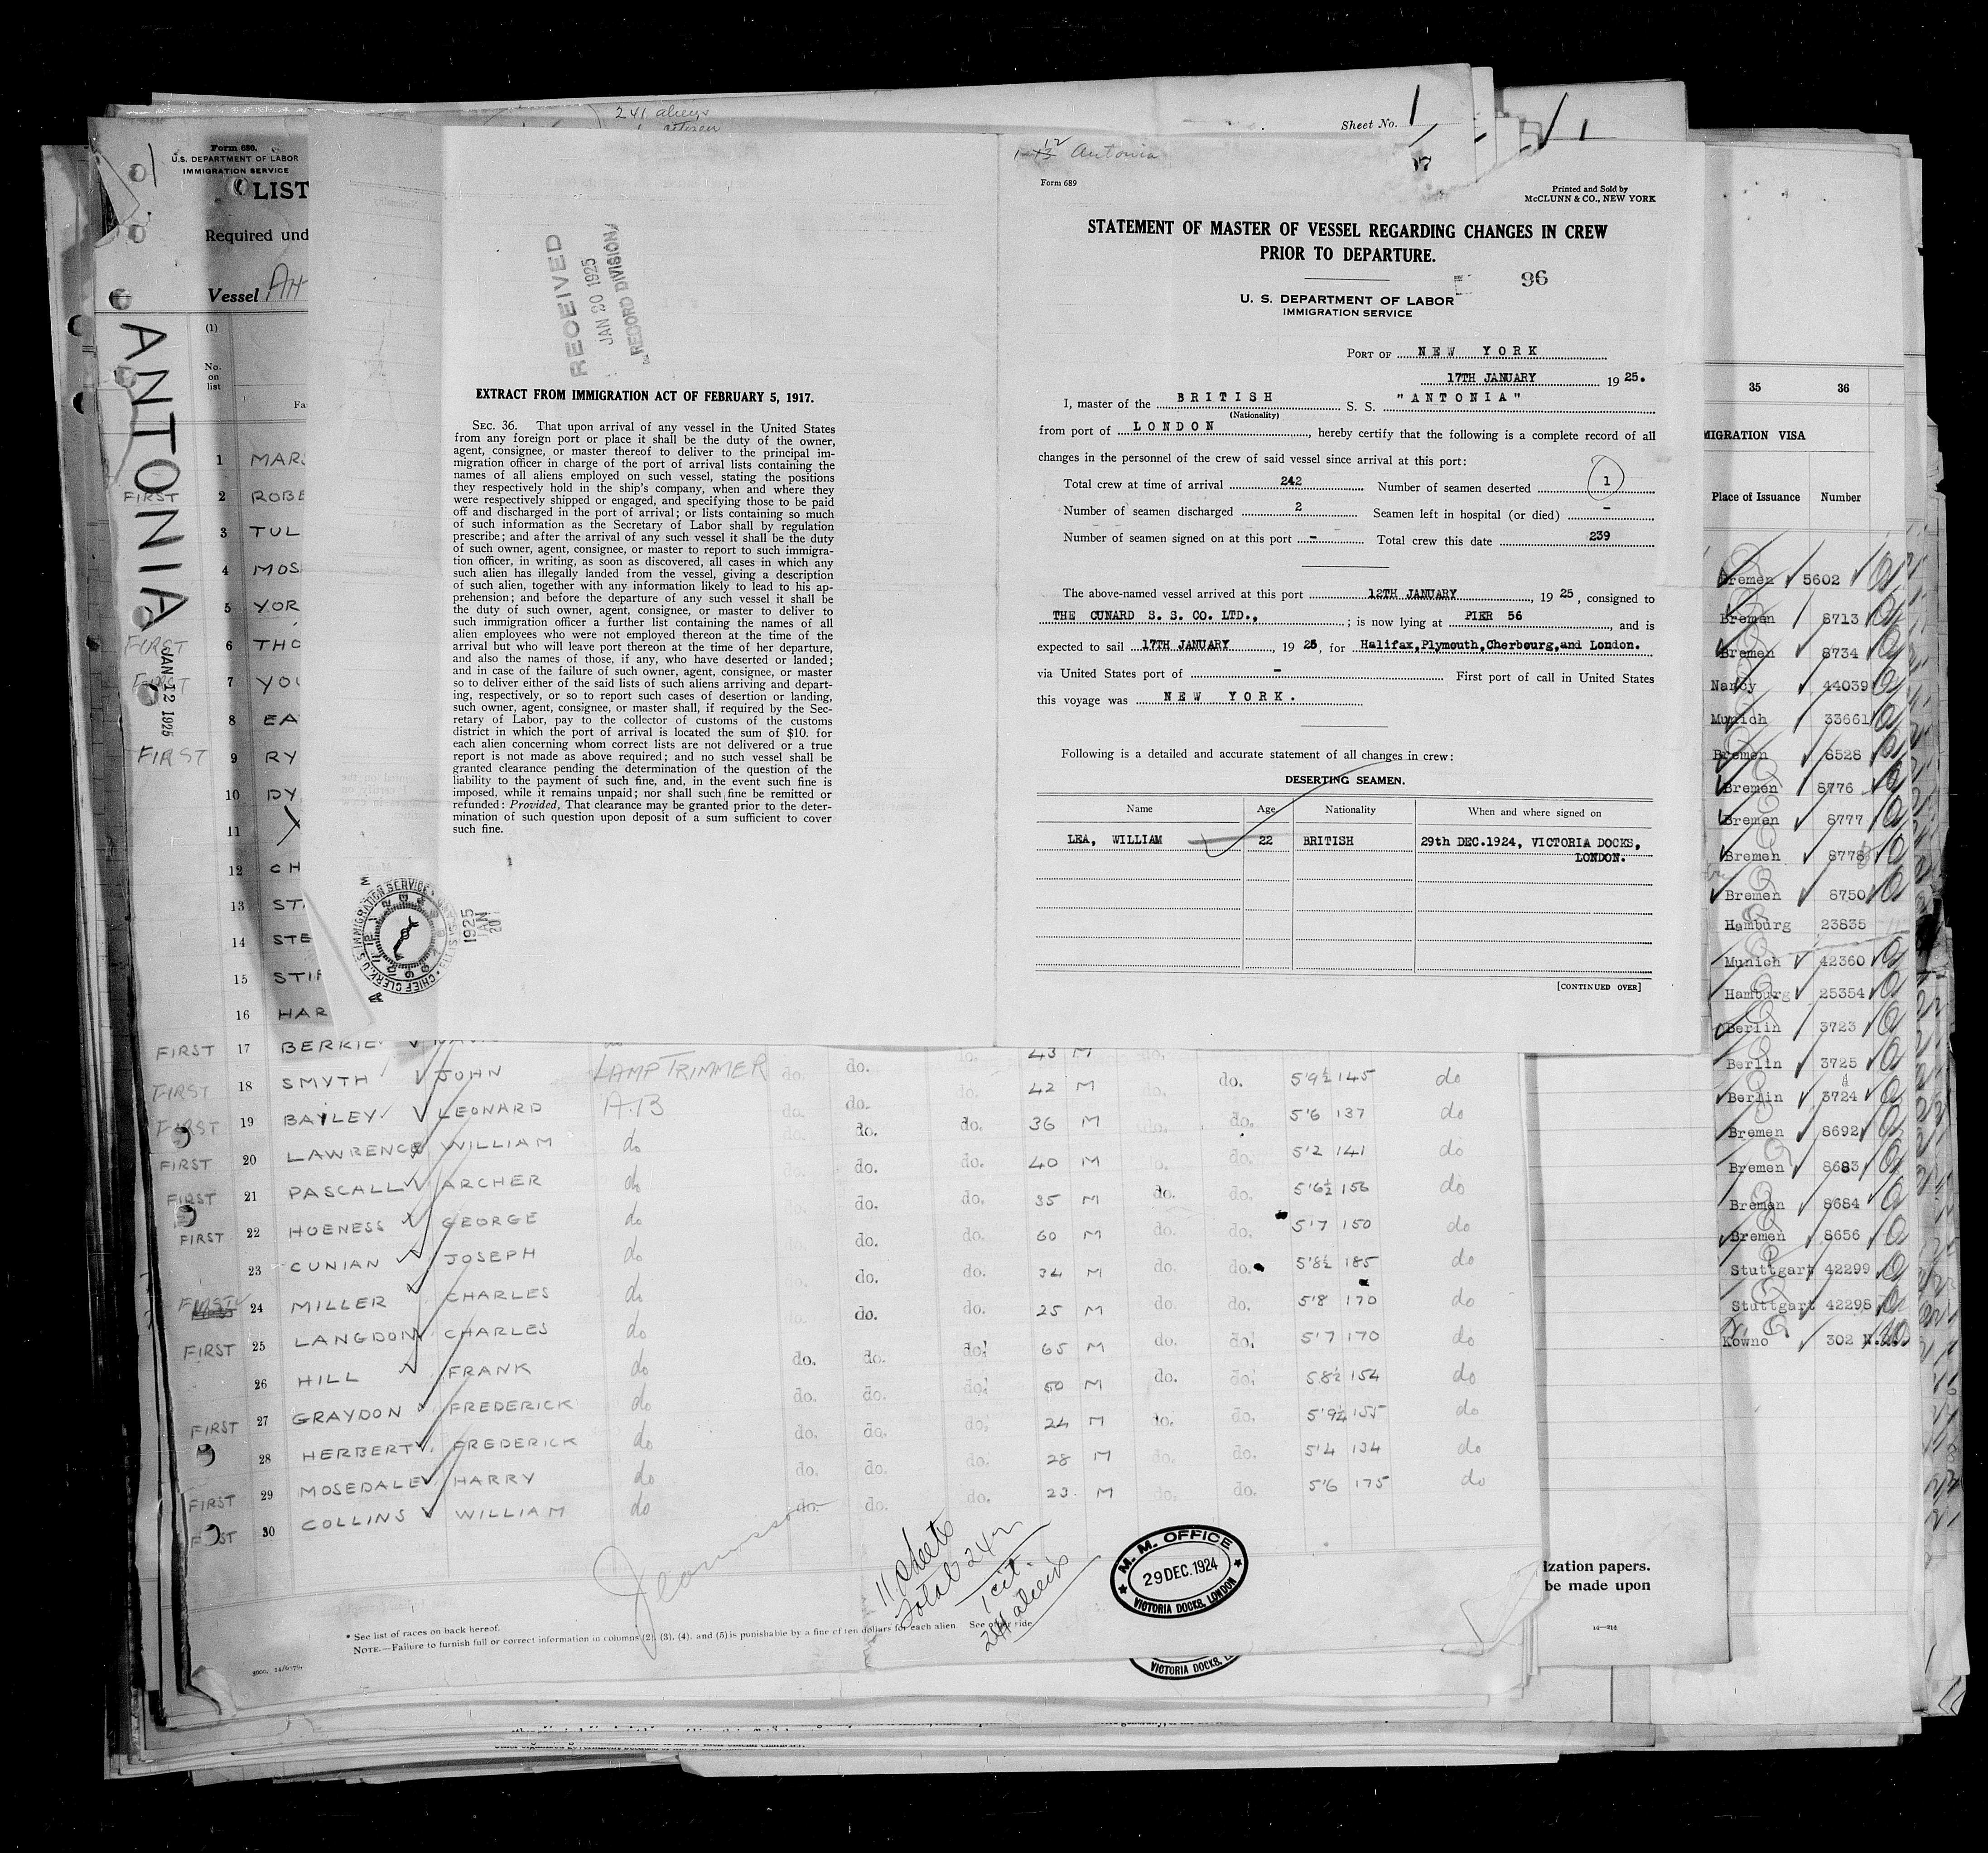 241 aliens
Sheet No. 1
Form 680.
U.S. DEPARTMENT OF LABOR
IMMIGRATION SERVICE
LIST
Required und
Vessel
(1)
No.
on
list
ANTONIA
JAN 12 1925
1 MAR
FIRST 2 ROBE
3 TUL
4 MOS
5 YOR
FIRST 6 THO
FIRST 7 YOU
8 EA
FIRST 9 RY
10 DY
11
12 CH
13 ST
14 STE
15 STIF
16 HAR
RECEIVED
JAN 20 1925
RECORD DIVISION
EXTRACT FROM IMMIGRATION ACT OF FEBRUARY 5, 1917.
SEC. 36. That upon arrival of any vessel in the United States
from any foreign port or place it shall be the duty of the owner,
agent, consignee, or master thereof to deliver to the principal im-
migration officer in charge of the port of arrival lists containing the
names of all aliens employed on such vessel, stating the positions
they respectively hold in the ship's company, when and where they
were respectively shipped or engaged, and specifying those to be paid
off and discharged in the port of arrival; or lists containing so much
of such information as the Secretary of Labor shall by regulation
prescribe; and after the arrival of any such vessel it shall be the duty
of such owner, agent, consignee, or master to report to such immigra-
tion officer, in writing, as soon as discovered, all cases in which any
such alien has illegally landed from the vessel, giving a description
of such alien, together with any information likely to lead to his ap-
prehension; and before the departure of any such vessel it shall be
the duty of such owner, agent, consignee, or master to deliver to
such immigration officer a further list containing the names of all
alien employees who were not employed thereon at the time of the
arrival but who will leave port thereon at the time of her departure,
and also the names of those, if any, who have deserted or landed;
and in case of the failure of such owner, agent, consignee, or master
so to deliver either of the said lists of such aliens arriving and depart-
ing, respectively, or so to report such cases of desertion or landing,
such owner, agent, consignee, or master shall, if required by the Sec-
retary of Labor, pay to the collector of customs of the customs
district in which the port of arrival is located the sum of $10. for
each alien concerning whom correct lists are not delivered or a true
report is not made as above required; and no such vessel shall be
granted clearance pending the determination of the question of the
liability to the payment of such fine, and, in the event such fine is
imposed, while it remains unpaid; nor shall such fine be remitted or
refunded: Provided, That clearance may be granted prior to the deter-
mination of such question upon deposit of a sum sufficient to cover
such fine.
CHIEF CLERK, U.S. IMMIGRATION SERVICE
1925
JAN
20
Antonia
Form 689
Printed and Sold by
McCLUNN & CO., NEW YORK
STATEMENT OF MASTER OF VESSEL REGARDING CHANGES IN CREW
PRIOR TO DEPARTURE.
96
U. S. DEPARTMENT OF LABOR
IMMIGRATION SERVICE
PORT OF NEW YORK
17TH JANUARY 1925.
I, master of the BRITISH S. S. "ANTONIA"
(Nationality)
from port of LONDON, hereby certify that the following is a complete record of all
changes in the personnel of the crew of said vessel since arrival at this port:
Total crew at time of arrival 242 Number of seamen deserted 1
Number of seamen discharged 2 Seamen left in hospital (or died) -
Number of seamen signed on at this port - Total crew this date 239
The above-named vessel arrived at this port 12TH JANUARY, 1925, consigned to
THE CUNARD S. S. CO. LTD., ; is now lying at PIER 56, and is
expected to sail 17TH JANUARY, 1925, for Halifax,Plymouth,Cherbourg,and London.
via United States port of - First port of call in United States
this voyage was NEW YORK.
Following is a detailed and accurate statement of all changes in crew:
DESERTING SEAMEN.
Name Age Nationality When and where signed on
LEA, WILLIAM 22 BRITISH 29th DEC.1924, VICTORIA DOCKS,
LONDON.
[CONTINUED OVER]
FIRST 17 43 M
FIRST 18 SMYTH JOHN LAMP TRIMMER do. do. do. 42 M do. 5'9½ 145 do
FIRST 19 BAYLEY LEONARD A.B do. do. do. 36 M do. do. 5'6 137 do
FIRST 20 LAWRENCE WILLIAM do do. do. 40 M do. 5'2 141 do
FIRST 21 PASCALL ARCHER do do. do. 35 M do. do. 5'6½ 156 do
FIRST 22 HOENESS GEORGE do do. do. 60 M do. do. 5'7 150 do
23 CUNIAN JOSEPH do do. do. 34 M do. do. 5'8½ 185 do
FIRST 24 MILLER CHARLES do do. do. 25 M do. do. 5'8 170 do
FIRST 25 LANGDON CHARLES do do. do. do. 65 M do. do. 5'7 170 do
26 HILL FRANK do do. do. do. 50 M do. do. 5'8½ 154 do
FIRST 27 GRAYDON FREDERICK do do. do. do. 24 M do. do. 5'9½ 155 do
28 HERBERT FREDERICK do do. do. do. 28 M do. do. 5'4 134 do
FIRST 29 MOSEDALE HARRY do do. do. do. 23 M do. do. 5'6 175 do
30 COLLINS WILLIAM do
11 sheets
Total 242
1 cit.
241 aliens
M. M. OFFICE
29 DEC. 1924
VICTORIA DOCKS, LONDON
VICTORIA DOCKS,
* See list of races on back hereof.
NOTE.—Failure to furnish full or correct information in columns (2), (3), (4), and (5) is punishable by a fine of ten dollars for each alien. See other side
35 36
MIGRATION VISA
Place of Issuance Number
Bremen 5602
Bremen 8713
Bremen 8734
Nancy 44039
Munich 33661
Bremen 8528
Bremen 8776
Bremen 8777
Bremen 8778
Bremen 8750
Hamburg 23835
Munich 42360
Hamburg 25354
Berlin 3723
Berlin 3725
Berlin 3724
Bremen 8692
Bremen 8683
Bremen 8684
Bremen 8656
Stuttgart 42299
Stuttgart 42298
Kowno 302
ization papers.
be made upon
14—214